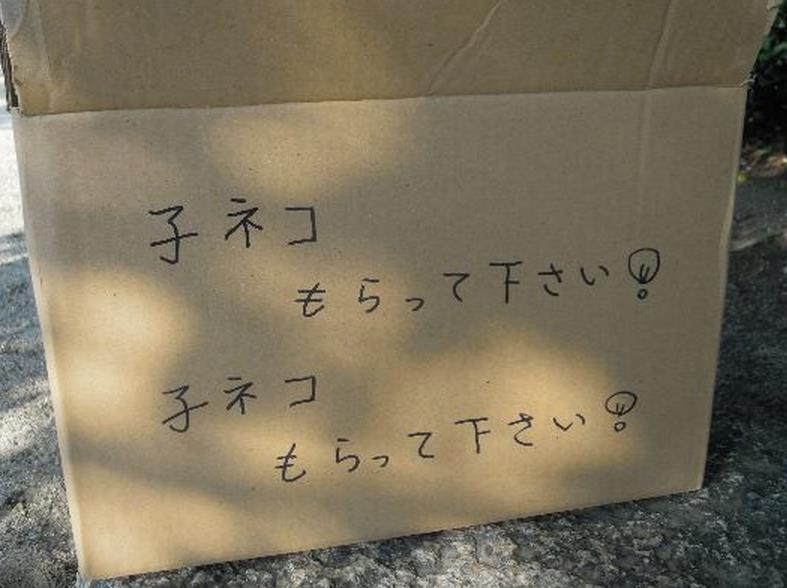 子ネコ
もらって下さい!
子ネコ
もらって下さい!